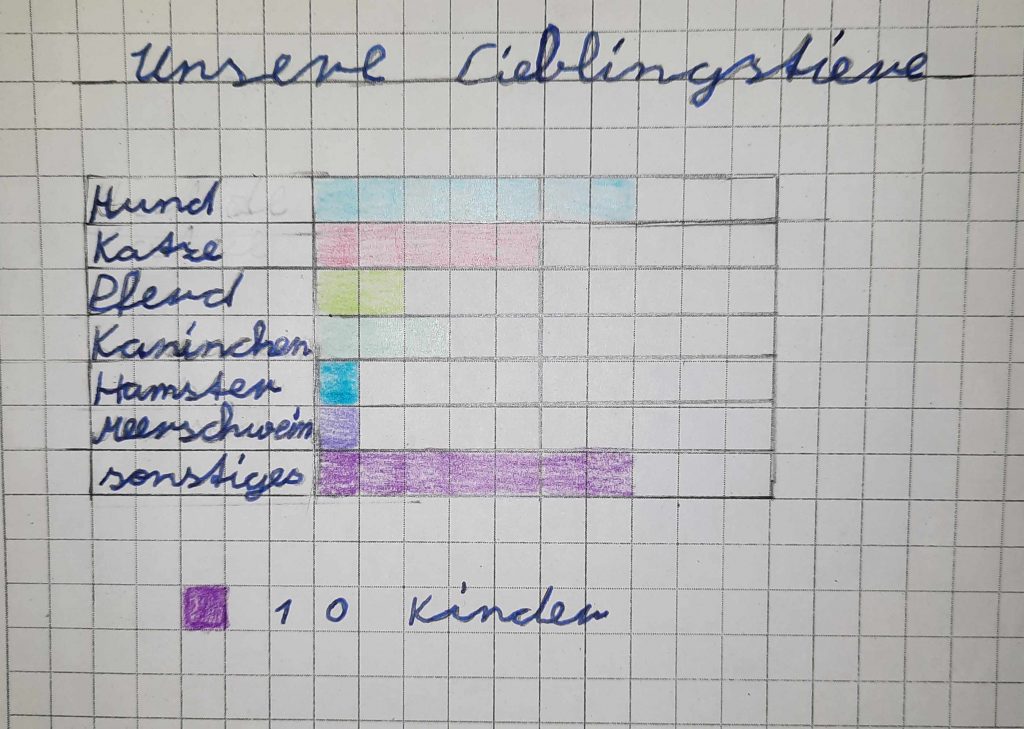 Unsere Lieblingstiere
Hund
Katze
Pferd
Kaninchen
Hamster
Meerschwein
sonstiges
10 Kinder